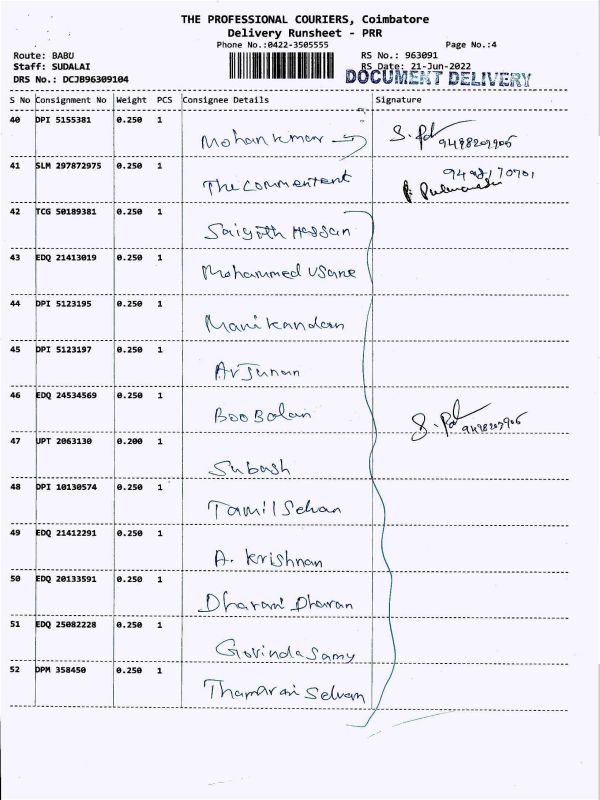 THE PROFESSIONAL COURIERS, Coimbatore
Delivery Runsheet - PRR
Phone No.:0422-3505555
Page No.:4
Route: BABU
RS No.: 963091
Staff: SUDALAI
RS Date: 21-Jun-2022
DRS No.: DCJB96309104
DOCUMENT DELIVERY
S No Consignment No Weight PCS Consignee Details Signature
40 DPI 5155381 0.250 1
Mohan kmar
9498209906
41 SLM 297872975 0.250 1
The Commentent
42 TCG 50189381 0.250 1
Saiyath Hassan
43 EDQ 21413019 0.250 1
Mohammed Usane
44 DPI 5123195 0.250 1
Manikandan
45 DPI 5123197 0.250 1
Arjunan
46 EDQ 24534569 0.250 1
Boobalan
47 UPT 2063130 0.200 1
Subash
48 DPI 10130574 0.250 1
Tamil Selvan
49 EDQ 21412291 0.250 1
A. Krishnan
50 EDQ 20133591 0.250 1
Dharani Dharan
51 EDQ 25082228 0.250 1
Govinda Samy
52 DPM 358450 0.250 1
Thamarai Selvam